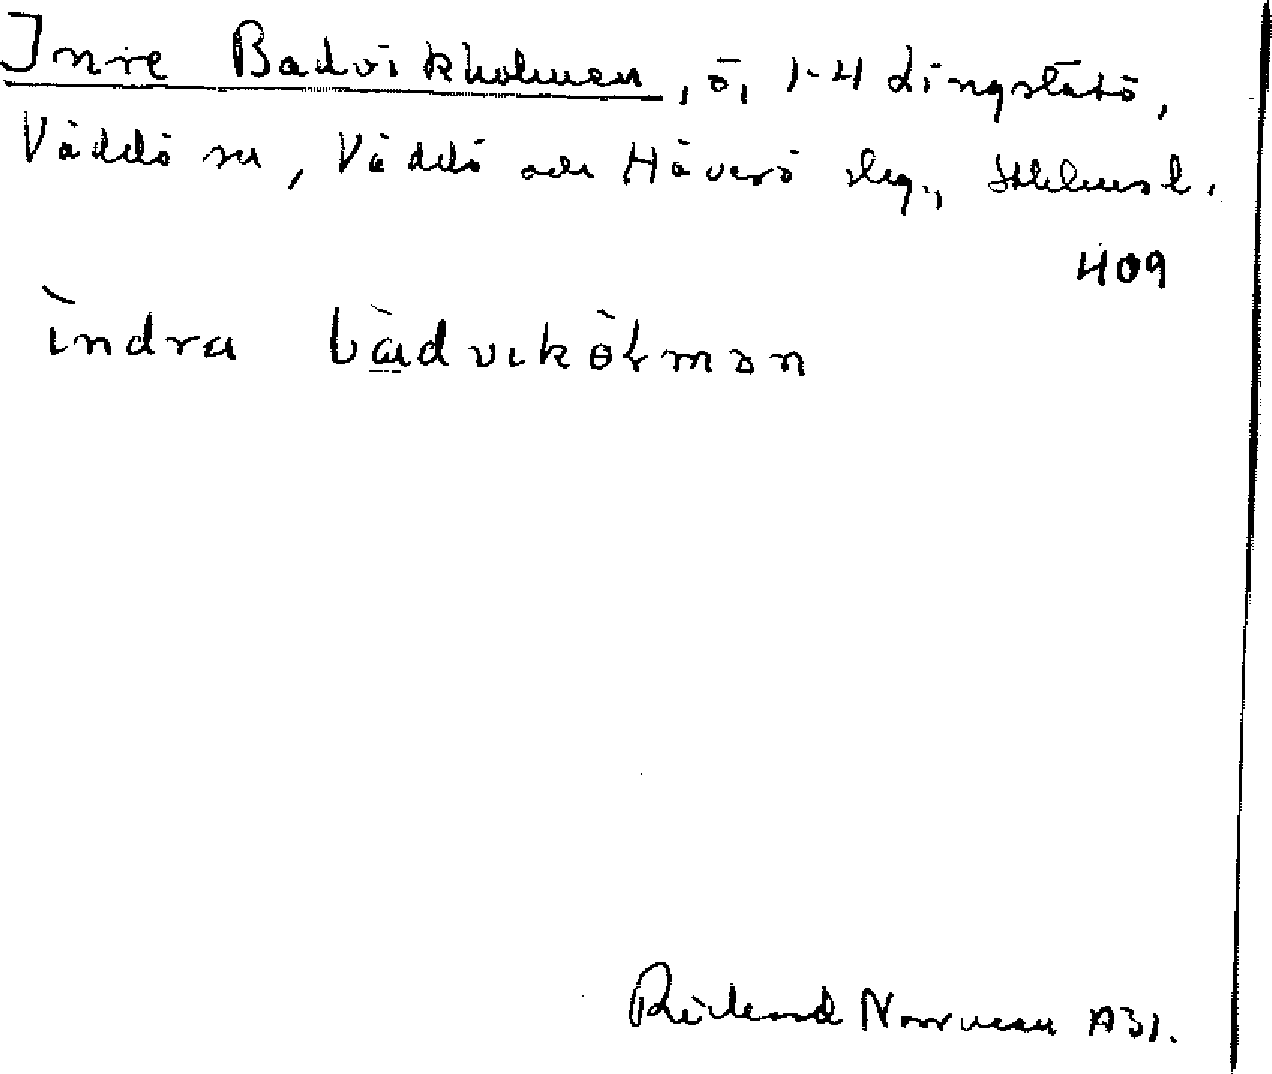 Inre Badvikholmen, ö, 1-4 Lingslätö,
Väddö sn, Väddö och Häverö slg., Sthlms l.
409
ìndra bàdvikòlmən
Rickard Norrman 1931.